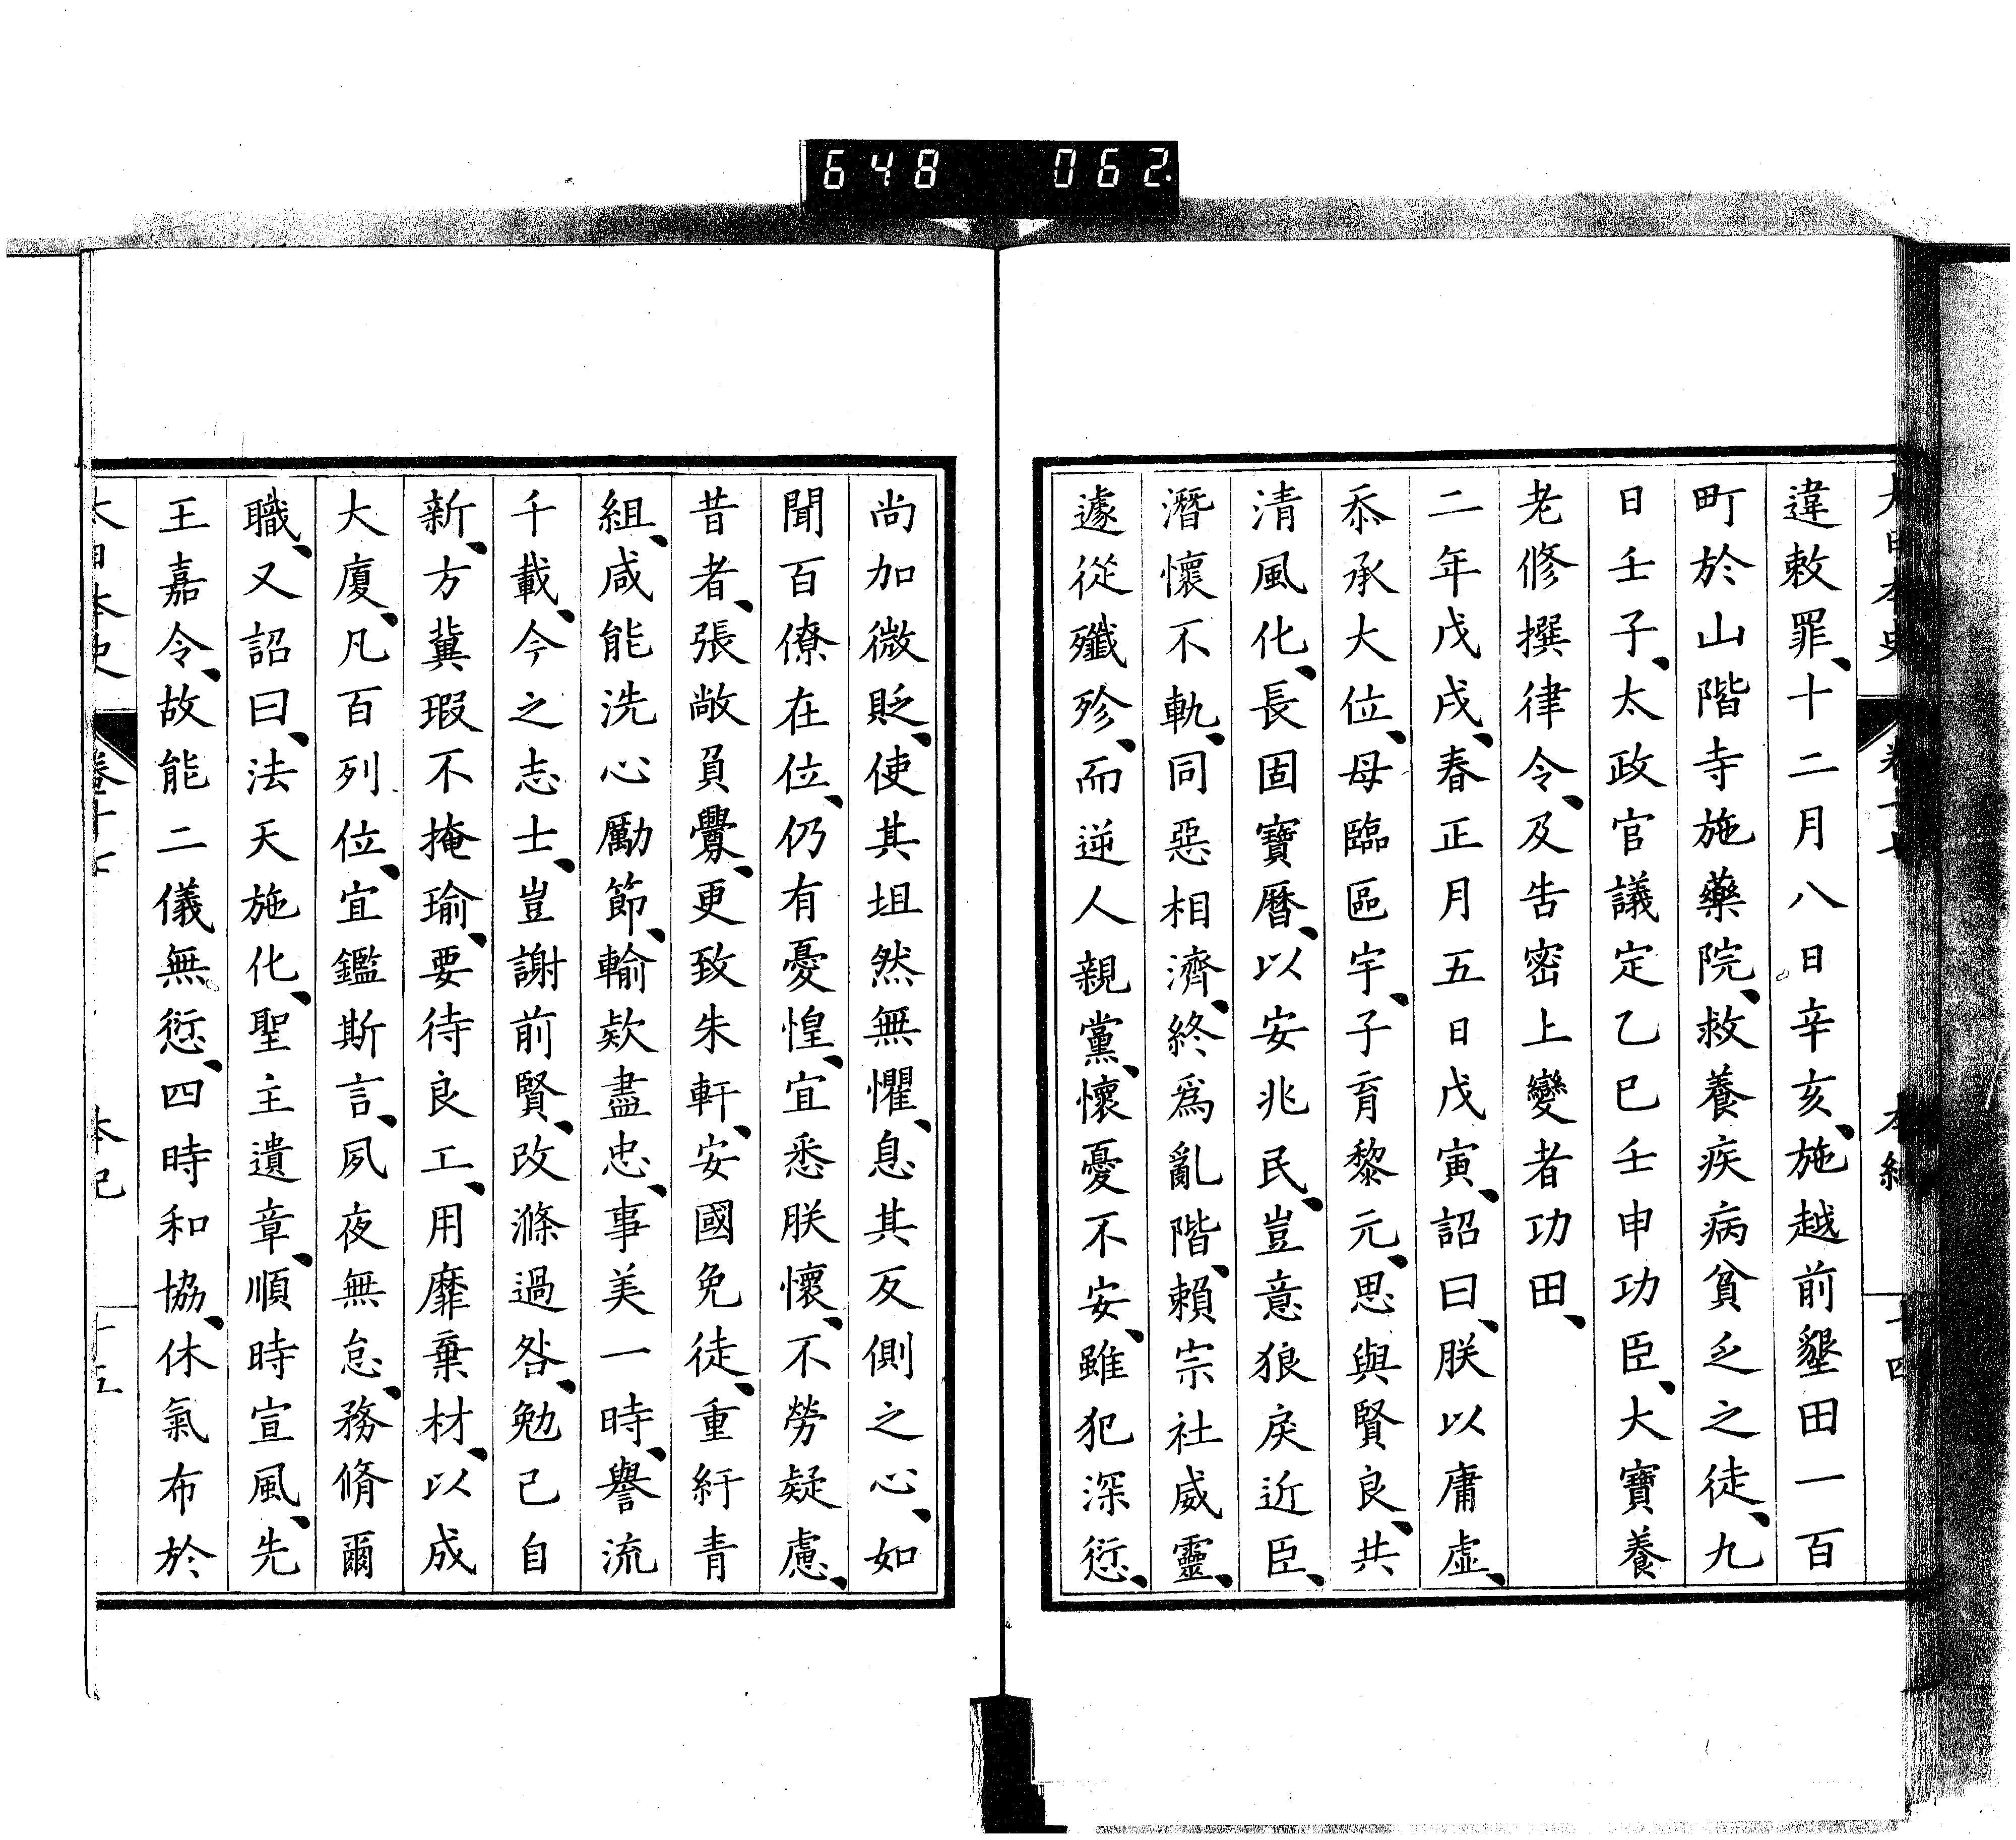 648 062
大日本史 卷十七 本紀 十四
違敕罪、十二月八日辛亥、施越前墾田一百
町於山階寺施藥院、救養疾病貧乏之徒、九
日壬子、太政官議定乙巳壬申功臣、大寶養
老修撰律令、及告密上變者功田、
二年戊戌、春正月五日戊寅、詔曰、朕以庸虛、
忝承大位、母臨區宇、子育黎元、思與賢良、共
清風化、長固寶曆、以安兆民、豈意狼戾近臣、
潛懷不軌、同惡相濟、終爲亂階、賴宗社威靈、
遽從殲殄、而逆人親黨、懷憂不安、雖犯深愆、
尚加微貶、使其坦然無懼、息其反側之心、如
聞百僚在位、仍有憂惶、宜悉朕懷、不勞疑慮、
昔者、張敞負釁、更致朱軒、安國免徒、重紆青
組、咸能洗心勵節、輸款盡忠、事美一時、譽流
千載、今之志士、豈謝前賢、改滌過咎、勉己自
新、方冀瑕不掩瑜、要待良工、用靡棄材、以成
大廈、凡百列位、宜鑑斯言、夙夜無怠、務脩爾
職、又詔曰、法天施化、聖主遺章、順時宣風、先
王嘉令、故能二儀無愆、四時和協、休氣布於
大日本史 卷十七 本紀 十五